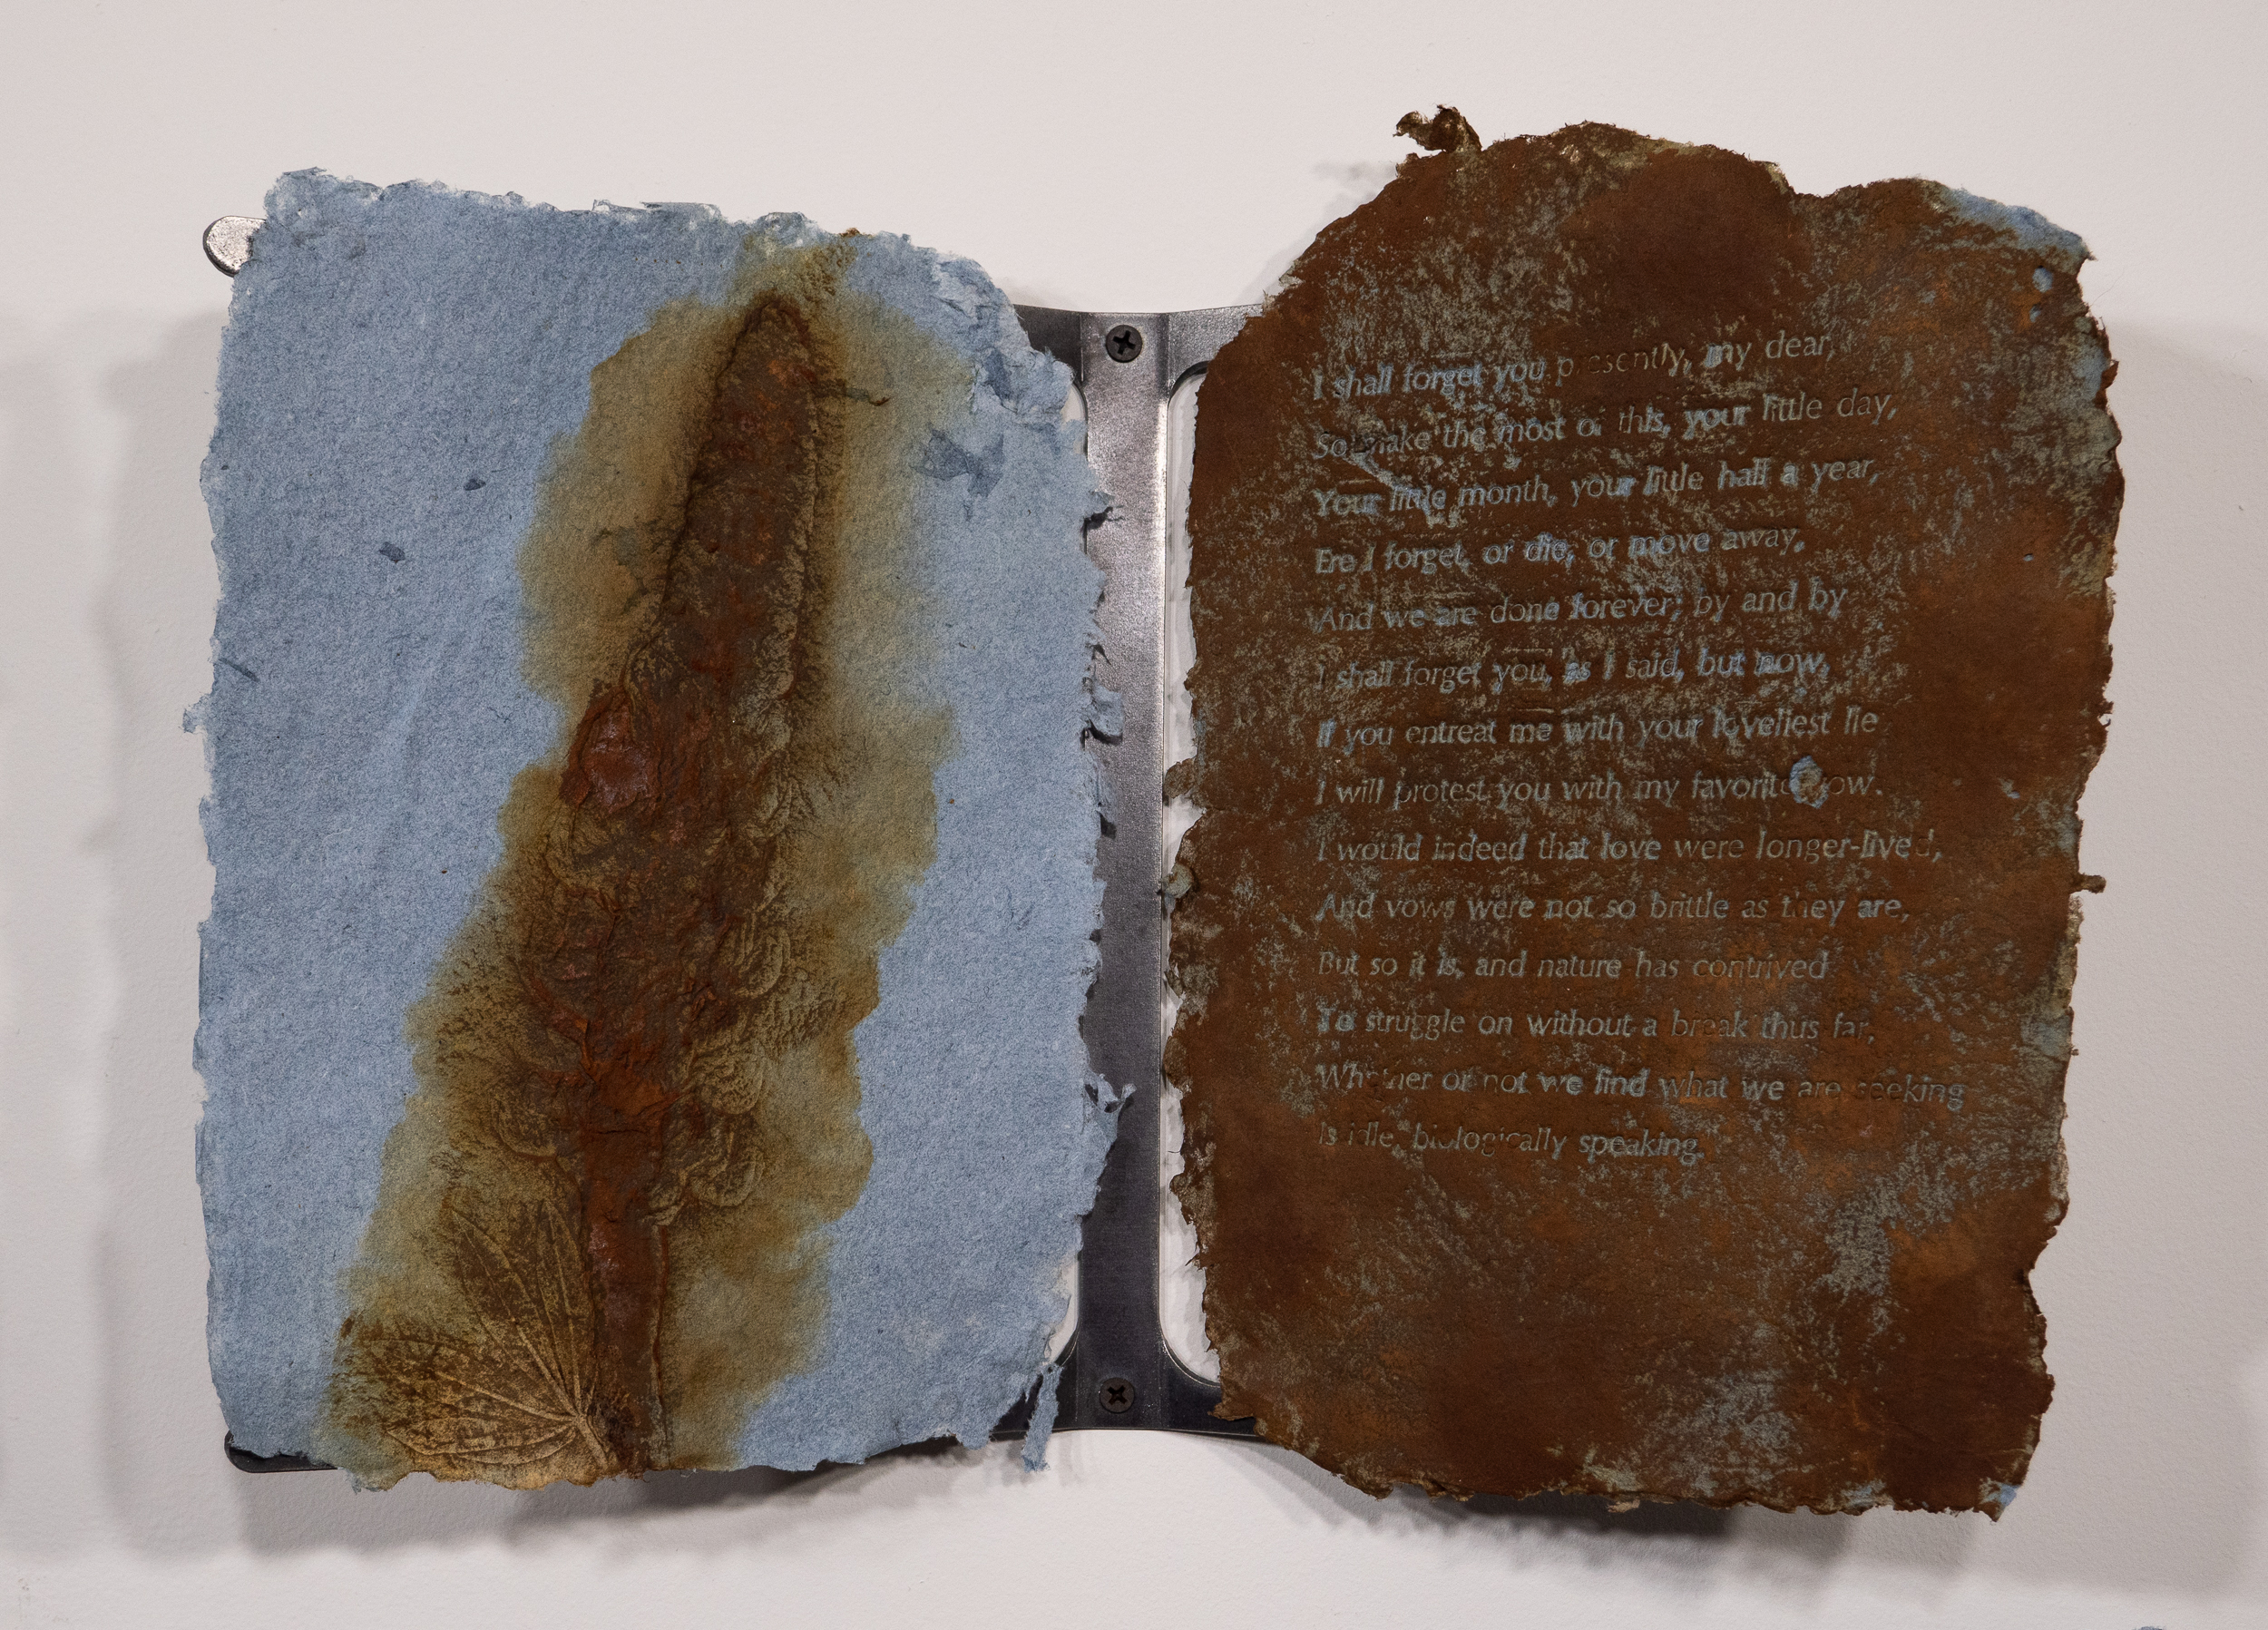 I shall forget you presently, my dear,
So make the most of this, your little day,
Your little month, your little half a year,
Ere I forget, or die, or move away,
And we are done forever; by and by
I shall forget you, as I said, but now,
If you entreat me with your loveliest lie
I will protest you with my favorite vow.
I would indeed that love were longer-lived,
And vows were not so brittle as they are,
But so it is, and nature has contrived
To struggle on without a break thus far,
Whether or not we find what we are seeking
Is idle, biologically speaking.